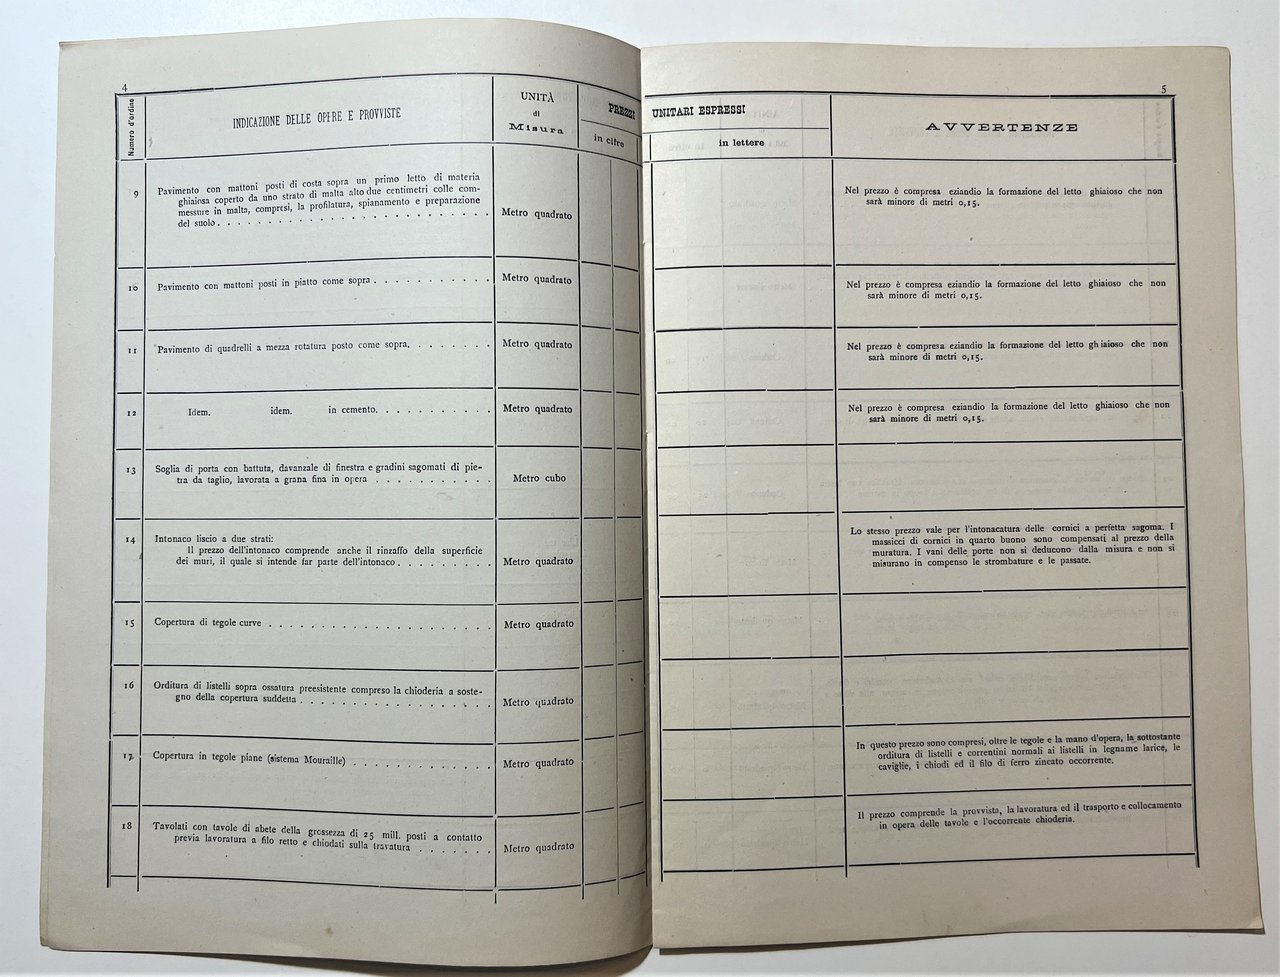 4
Numero d'ordine
INDICAZIONE DELLE OPERE E PROVVISTE
UNITÀ
di
Misura
PREZZI
in cifre
9
Pavimento con mattoni posti di costa sopra un primo letto di materia
ghiaiosa coperto da uno strato di malta alto due centimetri colle com-
messure in malta, compresi, la profilatura, spianamento e preparazione
del suolo . . . . . . . . . . . . . . . . . . . . . . . .
Metro quadrato
10
Pavimento con mattoni posti in piatto come sopra . . . . . . . . . . .
Metro quadrato
11
Pavimento di quadrelli a mezza rotatura posto come sopra. . . . . . . .
Metro quadrato
12
Idem. idem. in cemento. . . . . . . . . . .
Metro quadrato
13
Soglia di porta con battuta, davanzale di finestra e gradini sagomati di pie-
tra da taglio, lavorata a grana fina in opera . . . . . . . . . . .
Metro cubo
14
Intonaco liscio a due strati:
Il prezzo dell'intonaco comprende anche il rinzaffo della superficie
dei muri, il quale si intende far parte dell'intonaco . . . . . . . . .
Metro quadrato
15
Copertura di tegole curve . . . . . . . . . . . . . . . . . . . .
Metro quadrato
16
Orditura di listelli sopra ossatura preesistente compreso la chioderia a soste-
gno della copertura suddetta . . . . . . . . . . . . . . . . .
Metro quadrato
17
Copertura in tegole piane (sistema Mouraille) . . . . . . . . . . . .
Metro quadrato
18
Tavolati con tavole di abete della grossezza di 25 mill. posti a contatto
previa lavoratura a filo retto e chiodati sulla travatura . . . . . . .
Metro quadrato
5
UNITARI ESPRESSI
in lettere
AVVERTENZE
Nel prezzo è compresa eziandio la formazione del letto ghiaioso che non
sarà minore di metri 0,15.
Nel prezzo è compresa eziandio la formazione del letto ghiaioso che non
sarà minore di metri 0,15.
Nel prezzo è compresa eziandio la formazione del letto ghiaioso che non
sarà minore di metri 0,15.
Nel prezzo è compresa eziandio la formazione del letto ghiaioso che non
sarà minore di metri 0,15.
Lo stesso prezzo vale per l'intonacatura delle cornici a perfetta sagoma. I
massicci di cornici in quarto buono sono compensati al prezzo della
muratura. I vani delle porte non si deducono dalla misura e non si
misurano in compenso le strombature e le passate.
In questo prezzo sono compresi, oltre le tegole e la mano d'opera, la sottostante
orditura di listelli e correntini normali ai listelli in legname larice, le
caviglie, i chiodi ed il filo di ferro zincato occorrente.
Il prezzo comprende la provvista, la lavoratura ed il trasporto e collocamento
in opera delle tavole e l'occorrente chioderia.